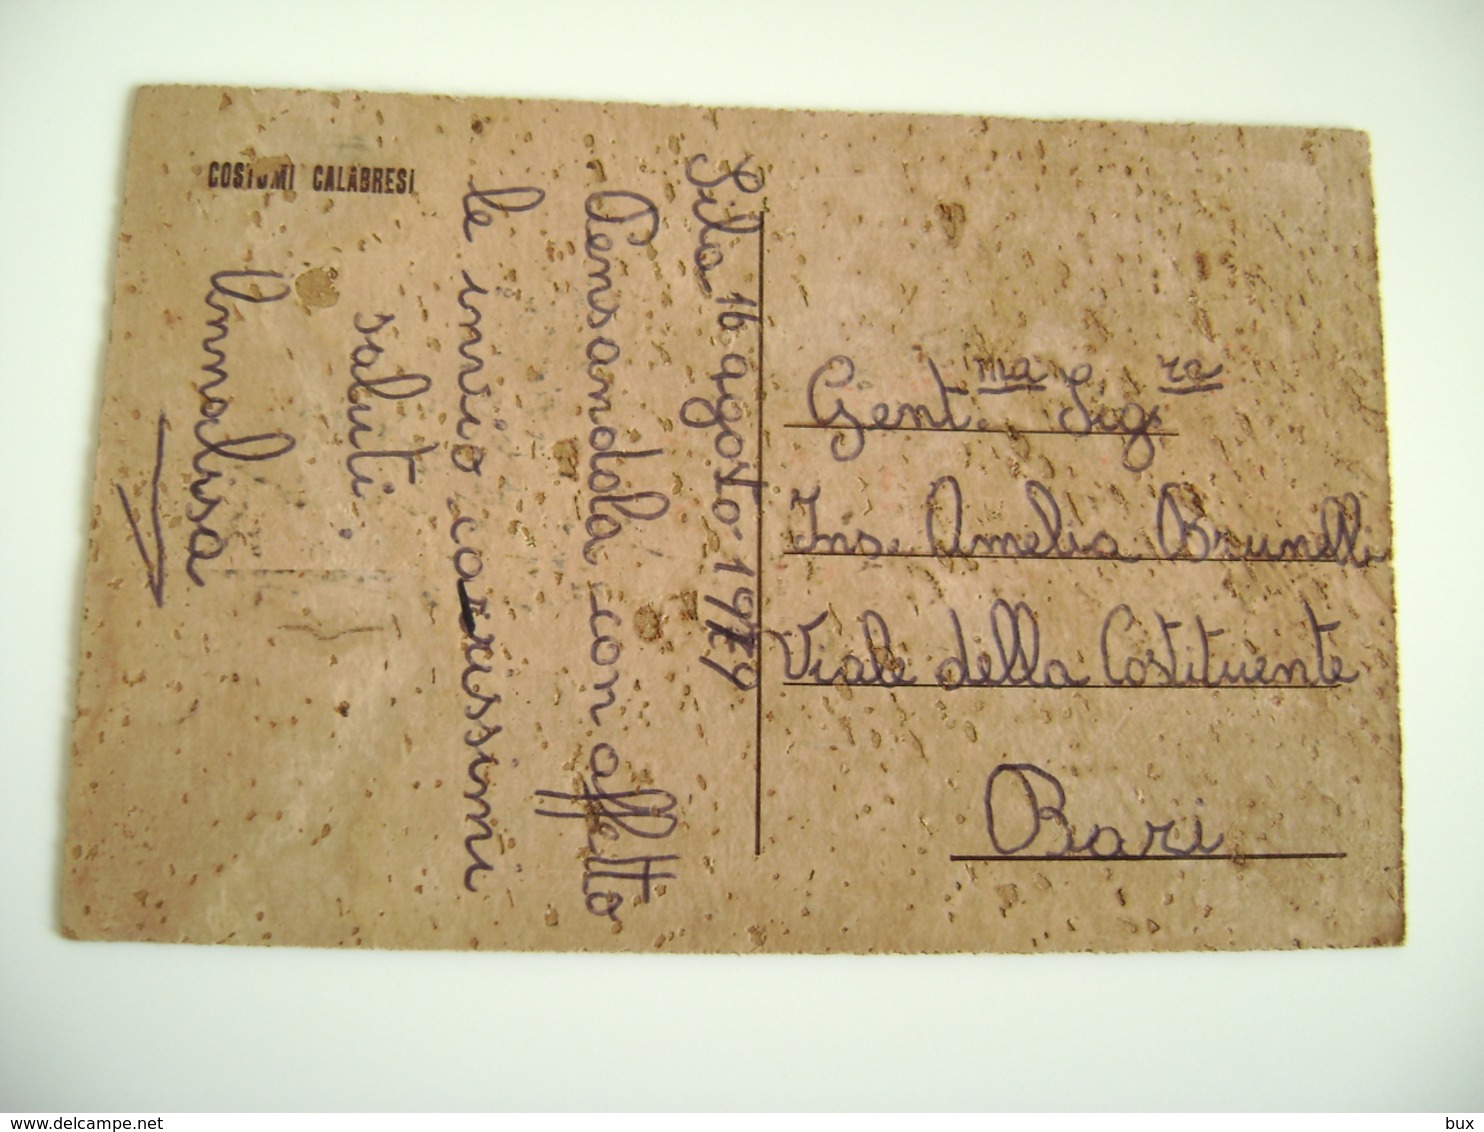 COSTUMI CALABRESI
Sila 16 agosto 1979
Pensandola con affetto
le invio carissimi
saluti.
Annalisa
Gent.ma Sig.ra
Ins. Amelia Brunelli
Viale della Costituente
Bari
delcampe.net
bux